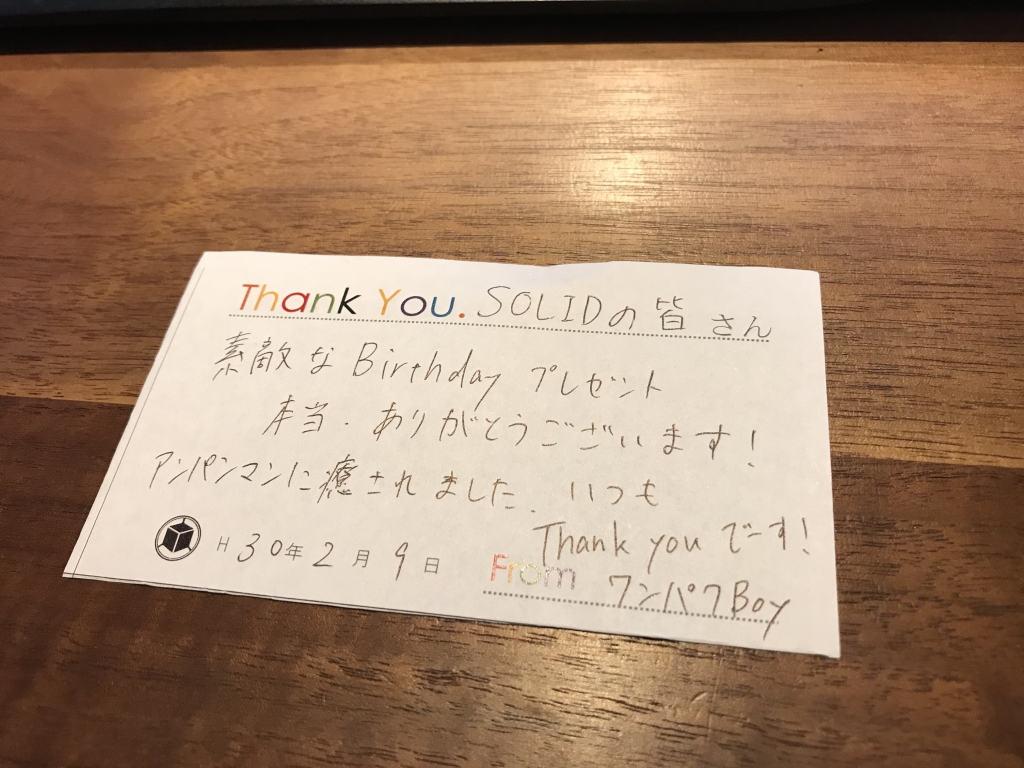 Thank You. SOLIDの皆さん
素敵なBirthdayプレゼント
本当.ありがとうございます!
アンパンマンに癒されました.いつも
Thank youでーす!
H30年2月9日
From ワンパクBoy